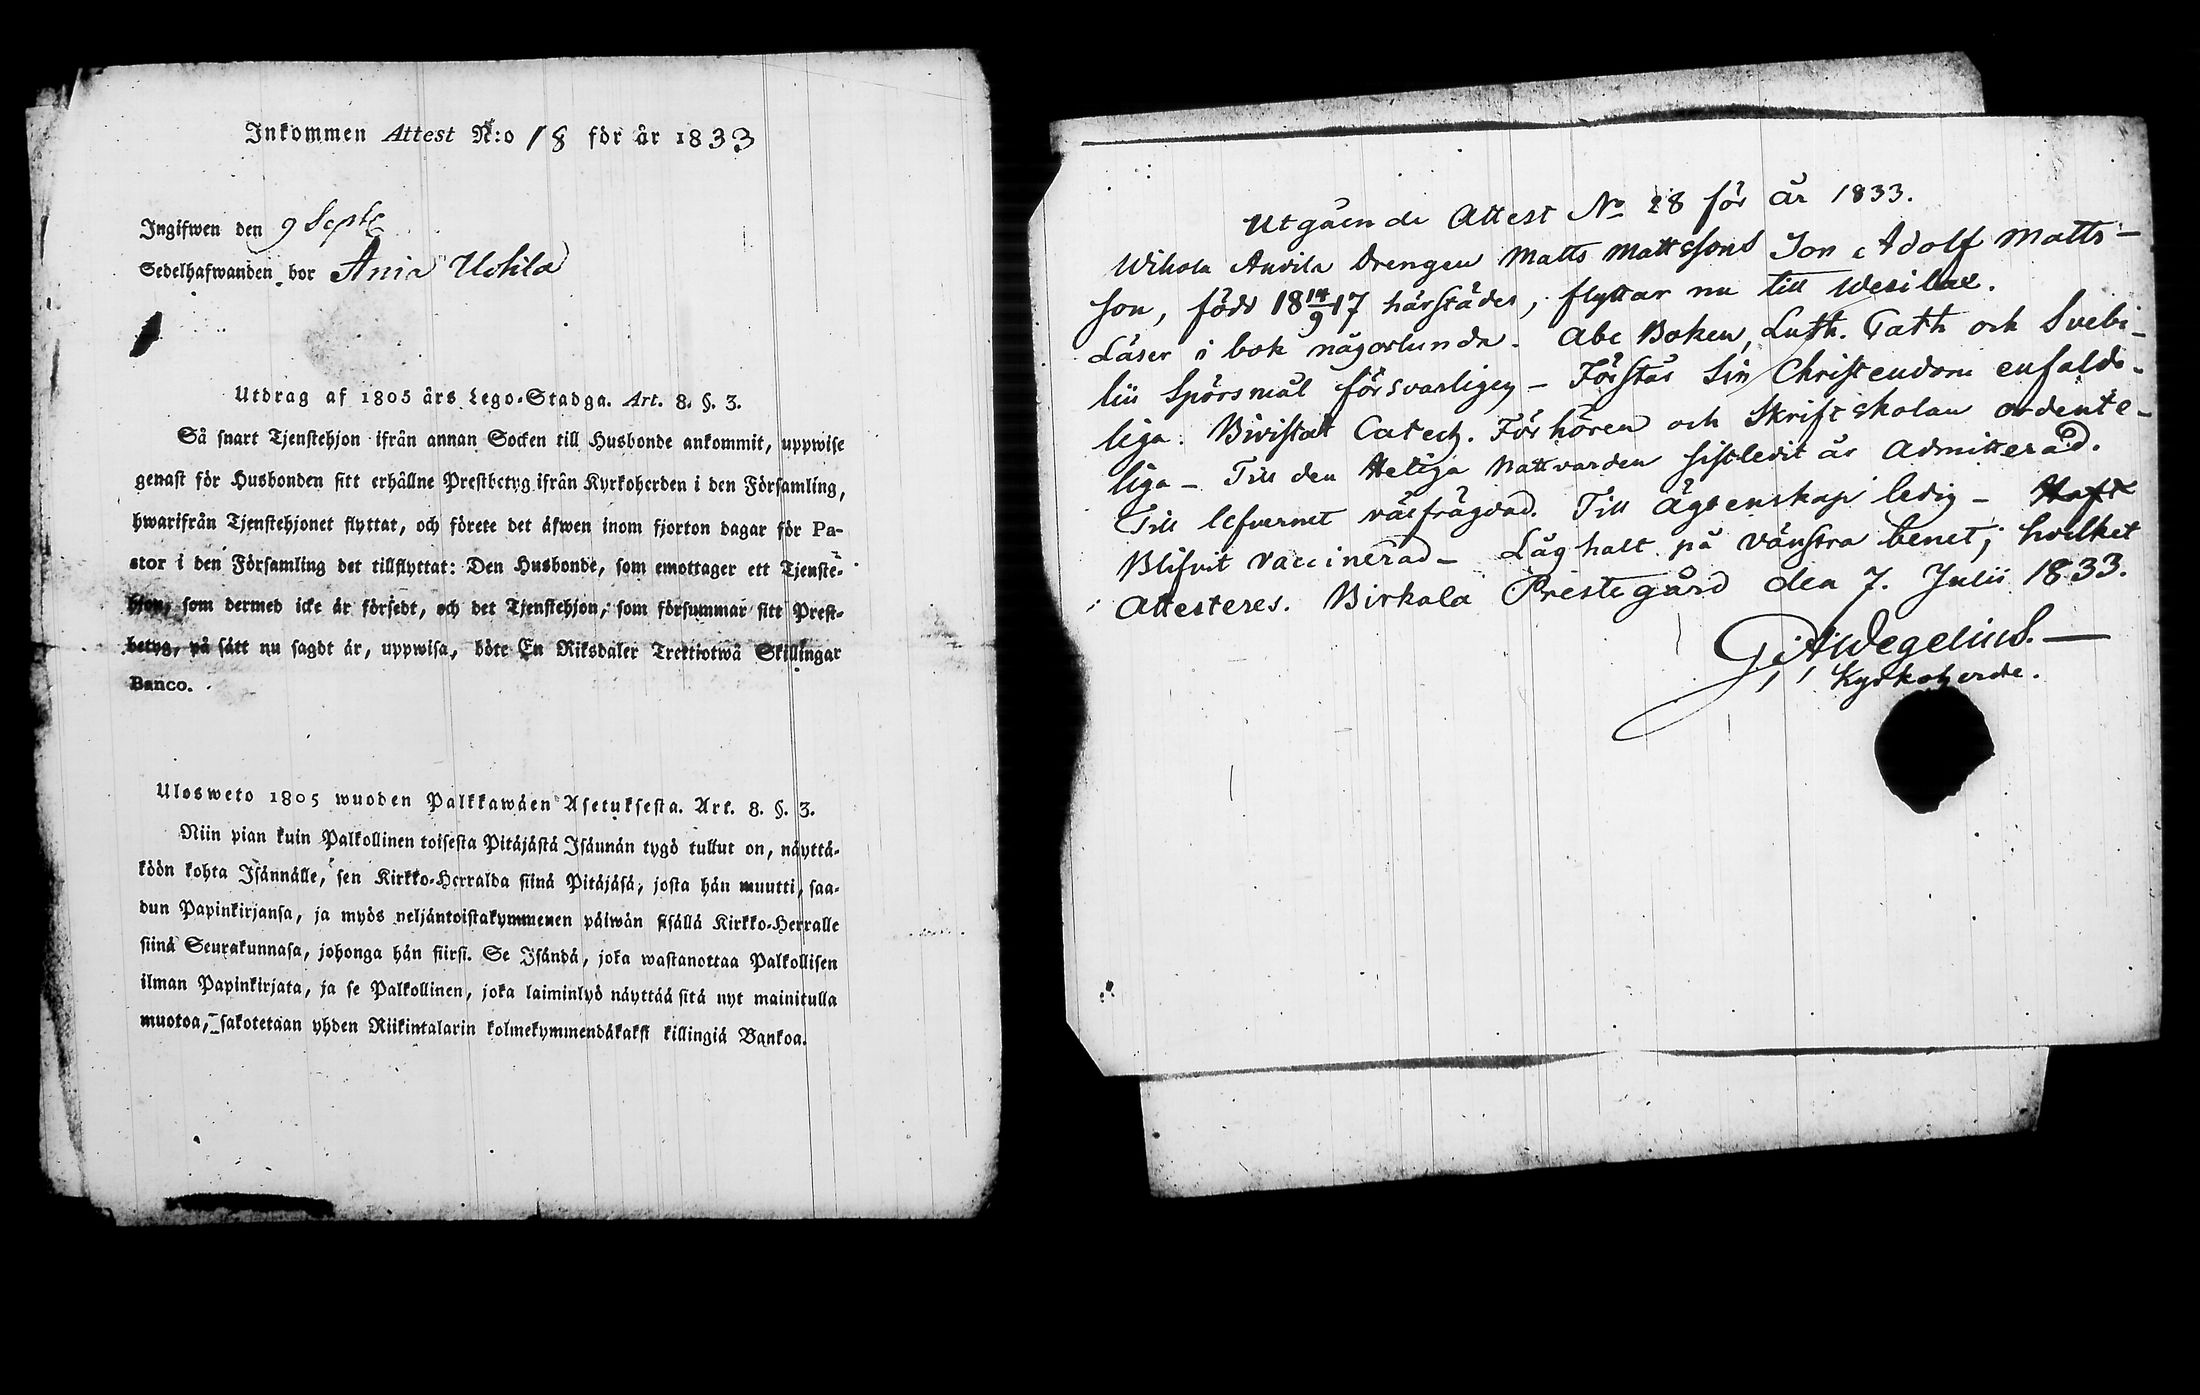 Inkommen Attest N:o 18 för år 1833
Ingifwen den 9 Sept
Sedelhafwanden bor Ania Uchila
Utdrag af 1805 års Lego-Stadga. Art. 8. §. 3.
Så snart Tjenstehjon ifrån annan Socken till Husbonde ankommit, uppwise
genast för Husbonden sitt erhållne Prestbetyg ifrån Kyrkoherden i den Församling,
hwarifrån Tjenstehjonet flyttat, och förete det äfwen inom fjorton dagar för Pa-
stor i den Församling det tillflyttat: Den Husbonde, som emottager ett Tjenste-
hjon, som dermed icke är försedt, och det Tjenstehjon, som försummar sitt Prest-
betyg, på sätt nu sagdt är, uppwisa, böte En Riksdaler Trettiotwå Skillingar
Banco.
Ulosweto 1805 wuoden Palkkawäen Asetuksesta. Art. 8. §. 3.
Niin pian kuin Palkollinen toisesta Pitäjästä Isäunän tygö tullut on, näyttä-
köön kohta Isännälle, sen Kirkko-Herralda siinä Pitäjäsä, josta hän muutti, saa-
dun Papinkirjansa, ja myös neljäntoistakymmenen päiwän sisällä Kirkko-Herralle
siinä Seurakunnasa, johonga hän siirsi. Se Isändä, joka wastanottaa Palkollisen
ilman Papinkirjata, ja se Palkollinen, joka laiminlyö näyttää sitä nyt mainitulla
muotoa, sakotetaan yhden Riikintalarin kolmekymmendäkaksi killingiä Bankoa.
Utgående Attest No 28 för år 1833.
Wihola Anvila Drengen Matts Mattssons Son Adolf Matts-
son, född 18 14/9 17 härstädes, flyttar nu till Wesilax.
Läser i bok någorlunda. Abc Boken, Luth. Cath och Svebi-
lii Spörsmål försvarligen - Förstår Sin Christendom enfaldi-
liga. Bivistat Catech. Förhören och Skriftskolan ordente-
liga - Till den Heliga Nattvarden sistledit år Admitterad.
Till lefvernet välfrägdad. Till Ägtenskap ledig -
Blifvit vaccinerad - Låghalt på vänstra benet; hvilket
Attesteres. Birkala Prestegård den 7. Julii 1833.
G. A. Wegelius.
Kyrkoherde.